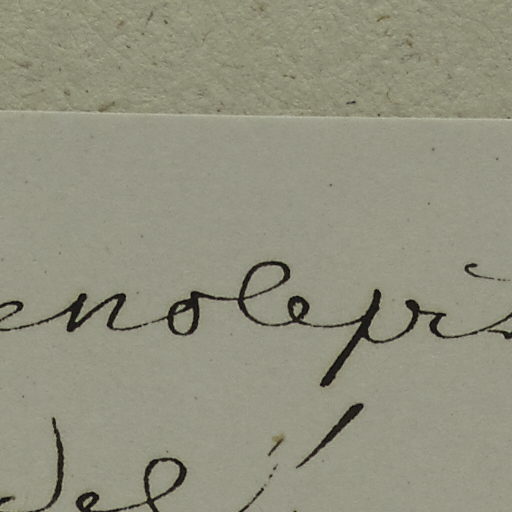 enolepis
del